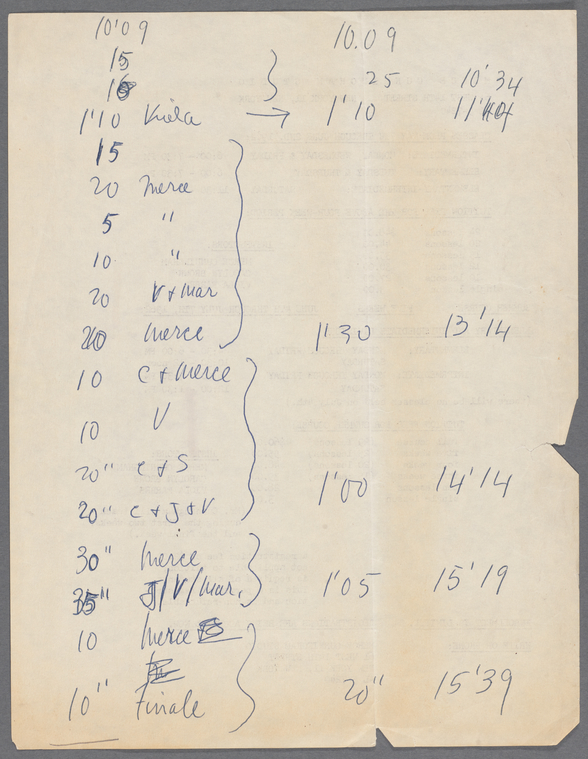 10'09 10.09
15
10 25 10'34
1'10 Viola → 1'10 11'44
15
20 Merce
5 "
10 "
20 V + Mar
20 Merce 1'30 13'14
10 C + Merce
10 V
20" C + S
20" C + J + V 1'00 14'14
30" Merce
35" J/V/Mar. 1'05 15'19
10 Merce
10" Finale 20" 15'39